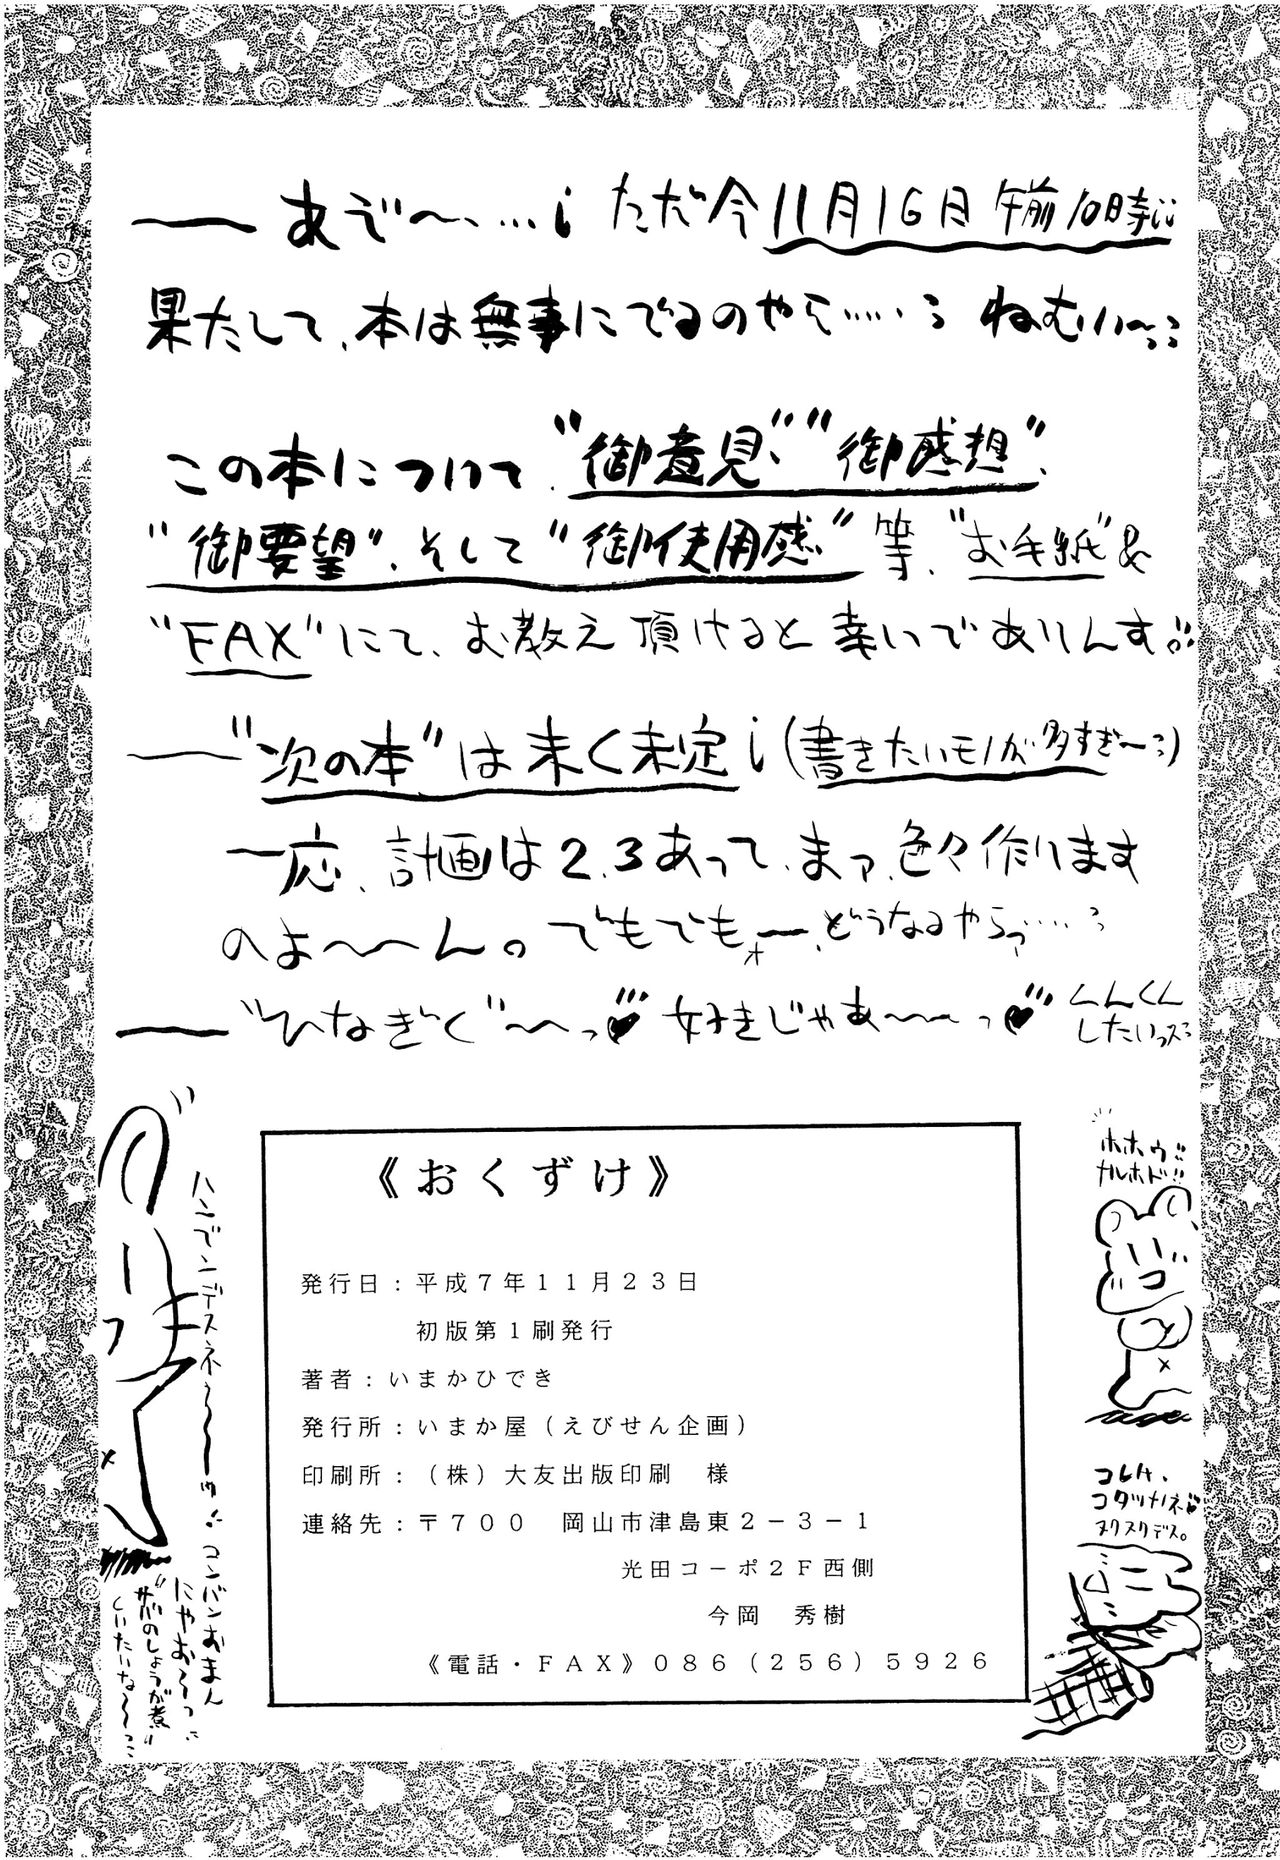 ── あぞ〜、…¡ ただ今11月16日 午前10時¡¡
果たして、本は無事にでるのやら……? ねむい〜??
この本について、"御意見"、"御感想"、
"御要望"、そして"御使用感"等、"お手紙"&
"FAX"にて、お教え頂けると幸いでありんす。
──"次の本"は未く未定¡(書きたいモノが多すぎ〜)
一応、計画は2、3あって、まァ、色々作ります
のよ〜〜ん。でもでもォー、どうなるやらァ……?
──"ひなぎく"〜っ♥ 好きじゃあ〜〜っ♥ くんくん
したいっス
《おくずけ》
発行日：平成7年11月23日
初版第1刷発行
著者：いまかひでき
発行所：いまか屋（えびせん企画）
印刷所：（株）大友出版印刷　様
連絡先：〒700　岡山市津島東2－3－1
光田コーポ2F西側
今岡　秀樹
《電話・FAX》086（256）5926
ホホウ!!
ナルホド!!
コレハ、
コタツハネ♥
ヌクヌクデス。
コンバンおまん
にゃお〜っ
"サバのしょうが煮"
しいたいな〜っ